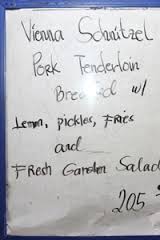 Vienna Schnitzel
Pork Tenderloin
Breaded w/
Lemon, pickles, Fries
and
Fresh Garden Salad
205